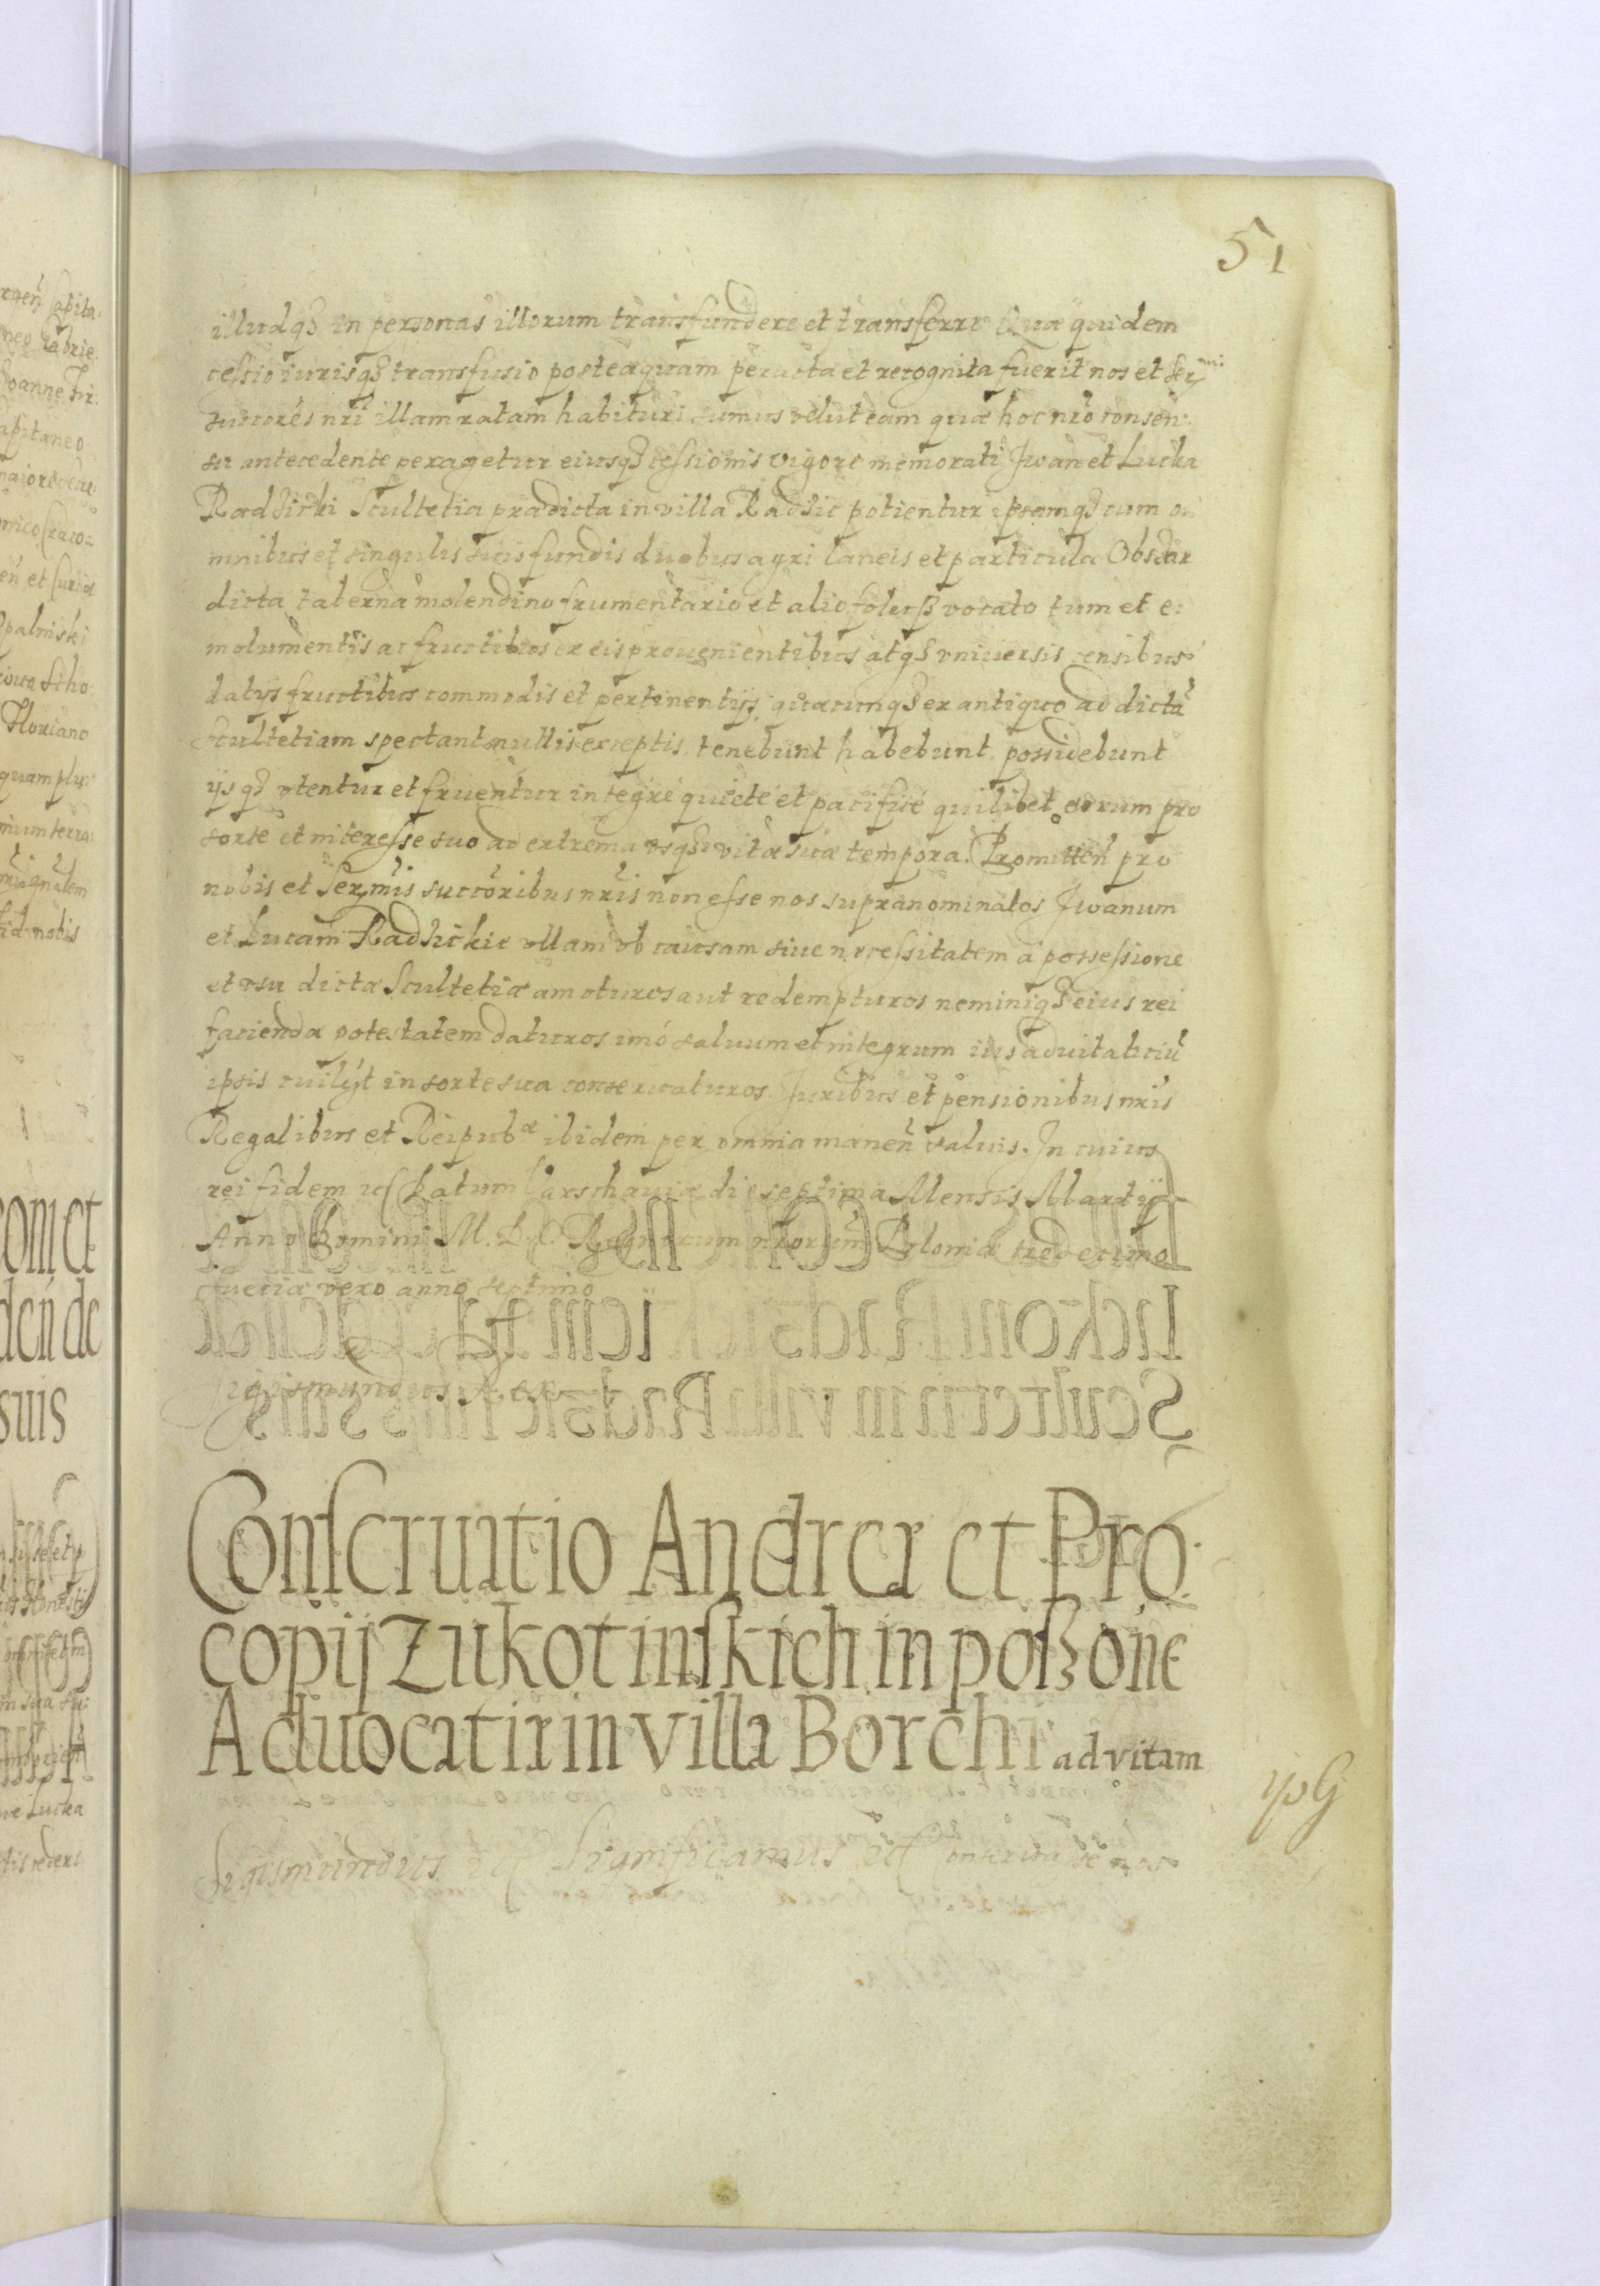 51
illudq3 in personas illorum transfundere et transferre Quæ quidem
cessio iurisq3 transfusio posteaquam peracta et recognita fuerit nos et Ser:mi
succores nri illam ratam habituri sumus velut eam quæ hoc nro consen:
su antecedente peragetur eiusq3 cessionis vigore memorati Jwan et Lucka
Radzicki Scultetia prædicta in villa Radzic potientur ipsamq3 cum o:
mnibus et singulis suis fundis duobus agri laneis et particula Obszar
dicta taberna molendino frumentario et alio folusz vocato tum et e:
molumentis ac fructibus ex eis prouenientibus atq3 vniuersis censibus
datijs fructibus commodis et pertinentijs quæcunq3 ex antiquo ad dictā
Scultetiam spectant nullis exceptis tenebunt habebunt possidebunt
ijsq3 vtentur et fruentur integre quiete et pacifice quilibet eorum pro
sorte et interesse suo ad extrema vsq3 vitæ suæ tempora. Promitten pro
nobis et Sermis succoribus nris non esse nos supranominatos Jwanum
et Lucam Radzickie vllam ob causam siue necessitatem a possessione
et vsu dictæ Scultetiæ amoturos aut redempturos neminiq3 eius rei
faciendæ potestatem daturos imo saluum et integrum ius aduitaliciū
ipsis cuilibt in sorte sua conseruaturos. Juribus et pensionibus nris
Regalibus et Reipubæ ibidem per omnia manen saluis. In cuius
rei fidem etc Datum Varschauiæ die septima Mensis Martij
Anno Domini M. D. C. Regnorum nrorum Poloniæ tredecimo
Sueciæ vero anno septimo
Sigismundus Rex
Conseruatio Andreæ et Pro:
copij Zukotinskich in poss3one
Aduocatiæ in villa Borchi ad vitam
Sigismundus etc Significamus etc